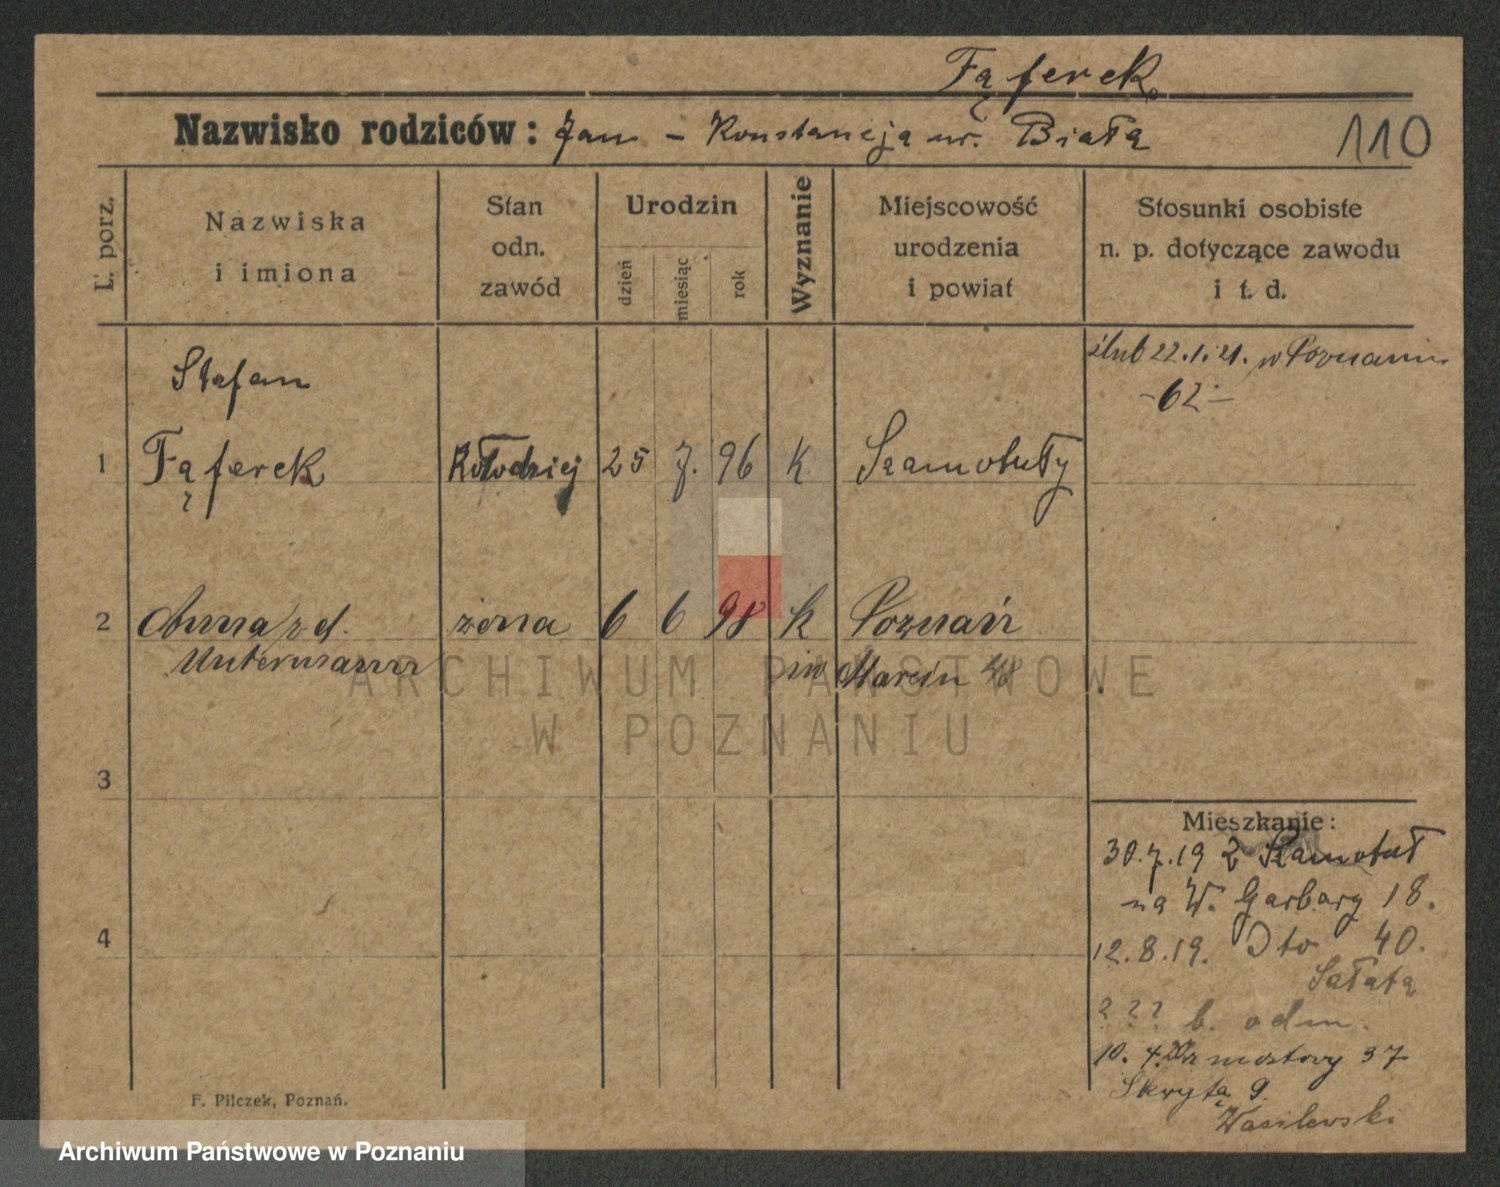 Fąferek
Nazwisko rodziców: Jan – Konstancja ur. Białą
110
L. porz.
Nazwiska
i imiona
Stan
odn.
zawód
Urodzin
dzień
miesiąc
rok
Wyznanie
Miejscowość
urodzenia
i powiat
Stosunki osobiste
n. p. dotyczące zawodu
i t. d.
ślub 22.1.21. w Poznaniu
-62-
Stefan
1 Fąferek Kołodziej 25 7. 96 K. Szamotuły
2 Anna z d. żona 6 6 98 k Poznań
Untermann
Marcin 48
3
4
Mieszkanie:
30.7.19 z Szamotuł
na W. Garbary 18.
12.8.19. Dto 40.
Sałatą
? ? ? b. odm.
10. 37
Skrytą 9.
Wasilewski
F. Pilczek, Poznań.
ARCHIWUM PAŃSTWOWE
W POZNANIU
Archiwum Państwowe w Poznaniu